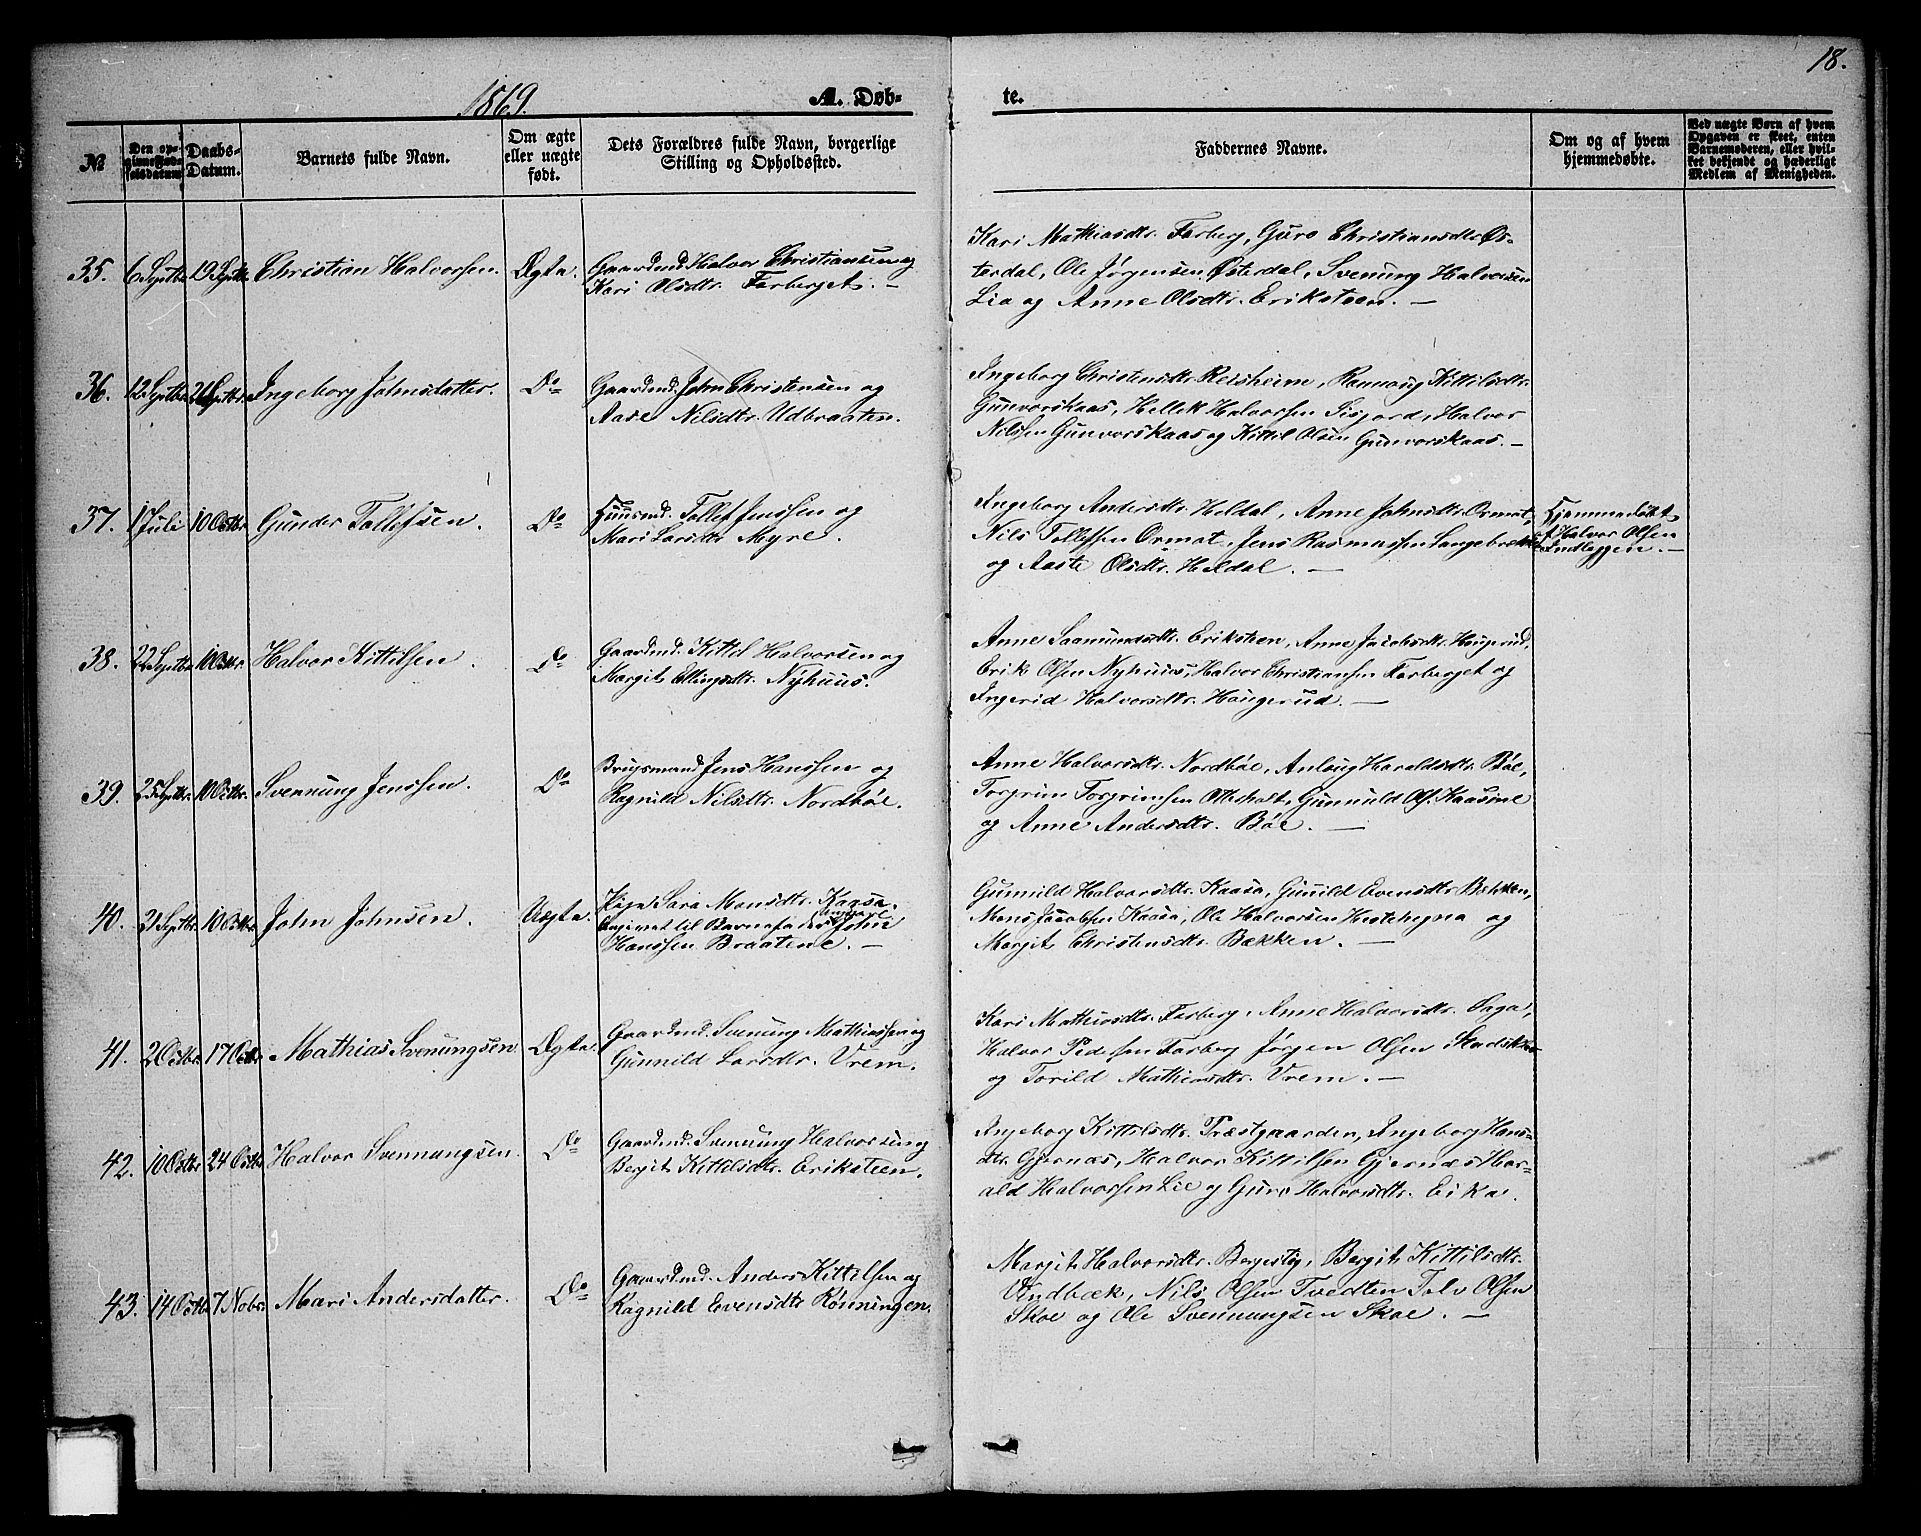 18.
1869.
A. Døb-
te.
№
Den opgivne Fødselsdatum
Daabs-Datum.
Barnets fulde Navn.
Om ægte eller uægte født.
Dets Forældres fulde Navn, borgerlige Stilling og Opholdssted.
Faddernes Navne.
Om og af hvem hjemmedøbte.
Ved uægte Børn af hvem Opgaven er skeet, enten Barnemoderen, eller hvilket bekjendt og hæderligt Medlem af Menigheden.
35. 6 Septbr 19 Septbr Christian Halvorsen. Ægte.
Gaardmd. Halvor Christiansen og
Kari Olsdtr. Farberget. —
Kari Mathiasdtr. Farberg, Guro Christiansdtr. Øs-
terdal, Ole Jørgensen Østerdal, Svenung Halvorsen
Lia og Anne Olsdtr. Eriksteen. —
36. 12 Septbr Septbr. Ingeborg Johnsdatter. Do
Gaardmd. John Christensen og
Aase Nilsdtr. Udbraaten.
Ingeborg Christensdtr. Reisheim, Rannveig Kittilsdtr.
Gunvorskaas, Hellek Halvorsen Halvor
Nilsen Gunvorskaas og Kittil Olsen Gunvorskaas. —
37. 1 Juli 10 Octbr. Gunder Tollefsen. Do
Huusmd. Tollef Jenssen og
Mari Larsdtr. Myre.
Ingeborg Andersdtr. Heldal, Anne Johnsdtr. Ormot,
Nils Tollefsen Ormot, Jens Rasmussen
og Aaste Olsdtr. Heldal. —
Hjemmedøbt
af Halvor Olsen
Indlæggen. —
38. 22 Septbr 10 Octbr. Halvor Kittilsen. Do
Gaardmd. Kittil Halvorsen og
Margit Ellingsdtr. Nyhuus.
Anne Saamundsdtr. Eriksteen, Anne Jacobsdtr. Haugerud,
Erik Olsen Nyhuus, Halvor Christiansen Farberget og
Ingerid Halvorsdtr. Haugerud. —
39. 25 Septbr. 10 Octbr. Svennung Jenssen. Do
Brugsmand Jens Hanssen og
Ragnild Nilsdtr. Nordbøe.
Anne Halvorsdtr. Nordbøe, Anlaug Haraldsdtr. Bøe,
Torgrim Torgrimsen Otterholt, Gunnuld Ols. Kaasene
og Anne Andersdtr. Bøe. —
40. Septbr 10 Octbr John Johnsen. Uægte.
Pige Sara Monsdtr. Kaasa.
Angivet til Barnefader Ungkarl John
Hanssen Braatene. —
Gunnild Halvorsdtr. Kaasa, Gunild Evensdtr. Bekken,
Mons Jacobsen Kaasa, Ole Halvorsen Hestehegna og
Margit Christensdtr. Bækken. —
41. 2 Octbr 17 Octbr Mathias Svenungsen. Ægte.
Gaardmd. Svenung Mathiassen og
Gunnild Larsdtr. Vrem.
Kari Mathiasdtr. Farberg, Anne Halvorsdtr. Saga,
Halvor Pedersen Farberg Jørgen Olsen
og Torild Mathiasdtr. Vrem. —
42. 10 Octbr 24 Octbr Halvor Svennungsen. Do
Gaardmd. Svenung Halvorsen og
Bergit Kittilsdtr. Eriksteen.
Ingeborg Kittilsdtr. Præstgaarden, Ingeborg Hans-
dtr. Gjernæs, Halvor Kittilsen Gjernæs Har-
ald Halvorsen Lie og Guro Halvorsdtr. Eika.
43. 14 Octbr 7. Nobr. Mari Andersdatter. Do
Gaardmd. Anders Kittilsen og
Ragnild Evensdtr Rønningen.
Margit Halvorsdtr. Bergestig, Bergit Kittilsdtr.
Vindbæk, Nils Olsen Tvedten Tolv Olsen
Skoe og Ole Svennungsen Skoe. —